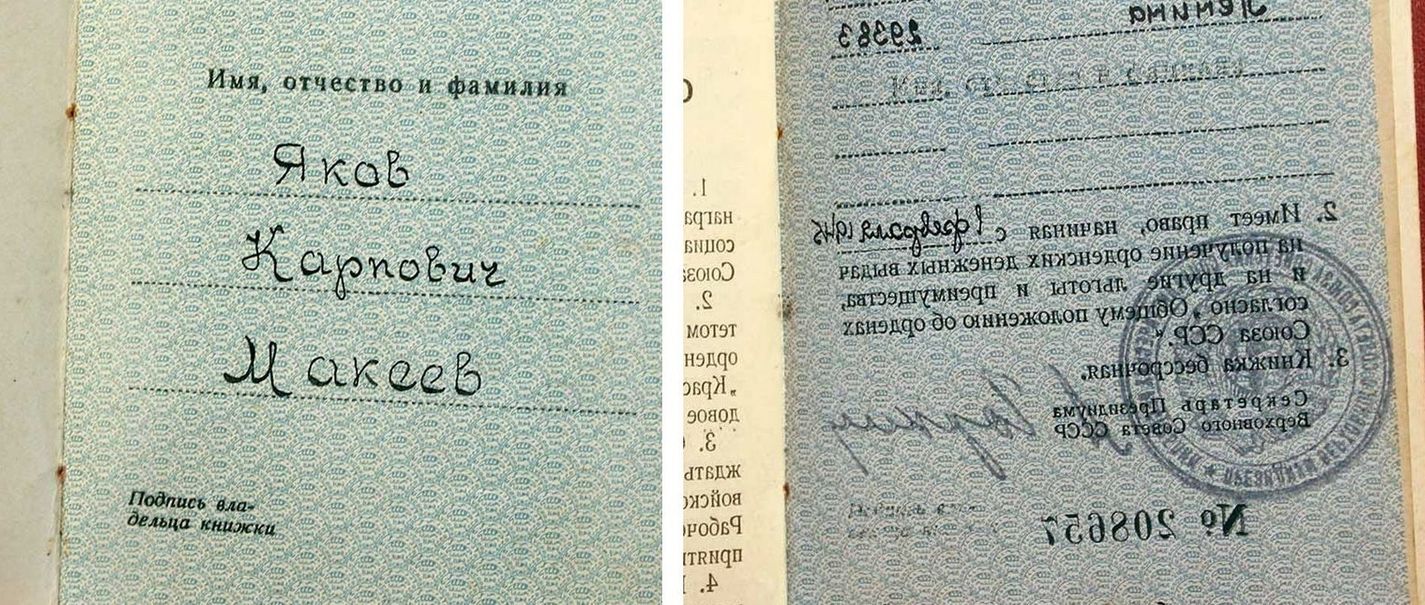 Имя, отчество и фамилия
Яков
Карпович
Макеев
Подпись вла-
дельца книжки
Ленина 29383
2. Имеет право, начиная с 1 февраля
на получение орденских денежных выдач
и на другие льготы и преимущества,
согласно „Общему положению об орденах
Союза ССР“.
3. Книжка бессрочная.
Секретарь Президиума
Верховного Совета СССР
№ 208657
1.
награ
социа
Союза
2.
тетом
орден
„Крас
довое
3.
ждать
войско
Рабоче
прият
4.